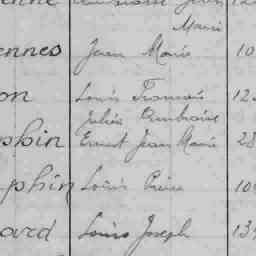 Marie
ennes Jean Marie 10
on Louis François 12
Julien Ambroise
phin Ernest Jean Marie 28
phin Louis Pierre 10
ard Louis Joseph 13